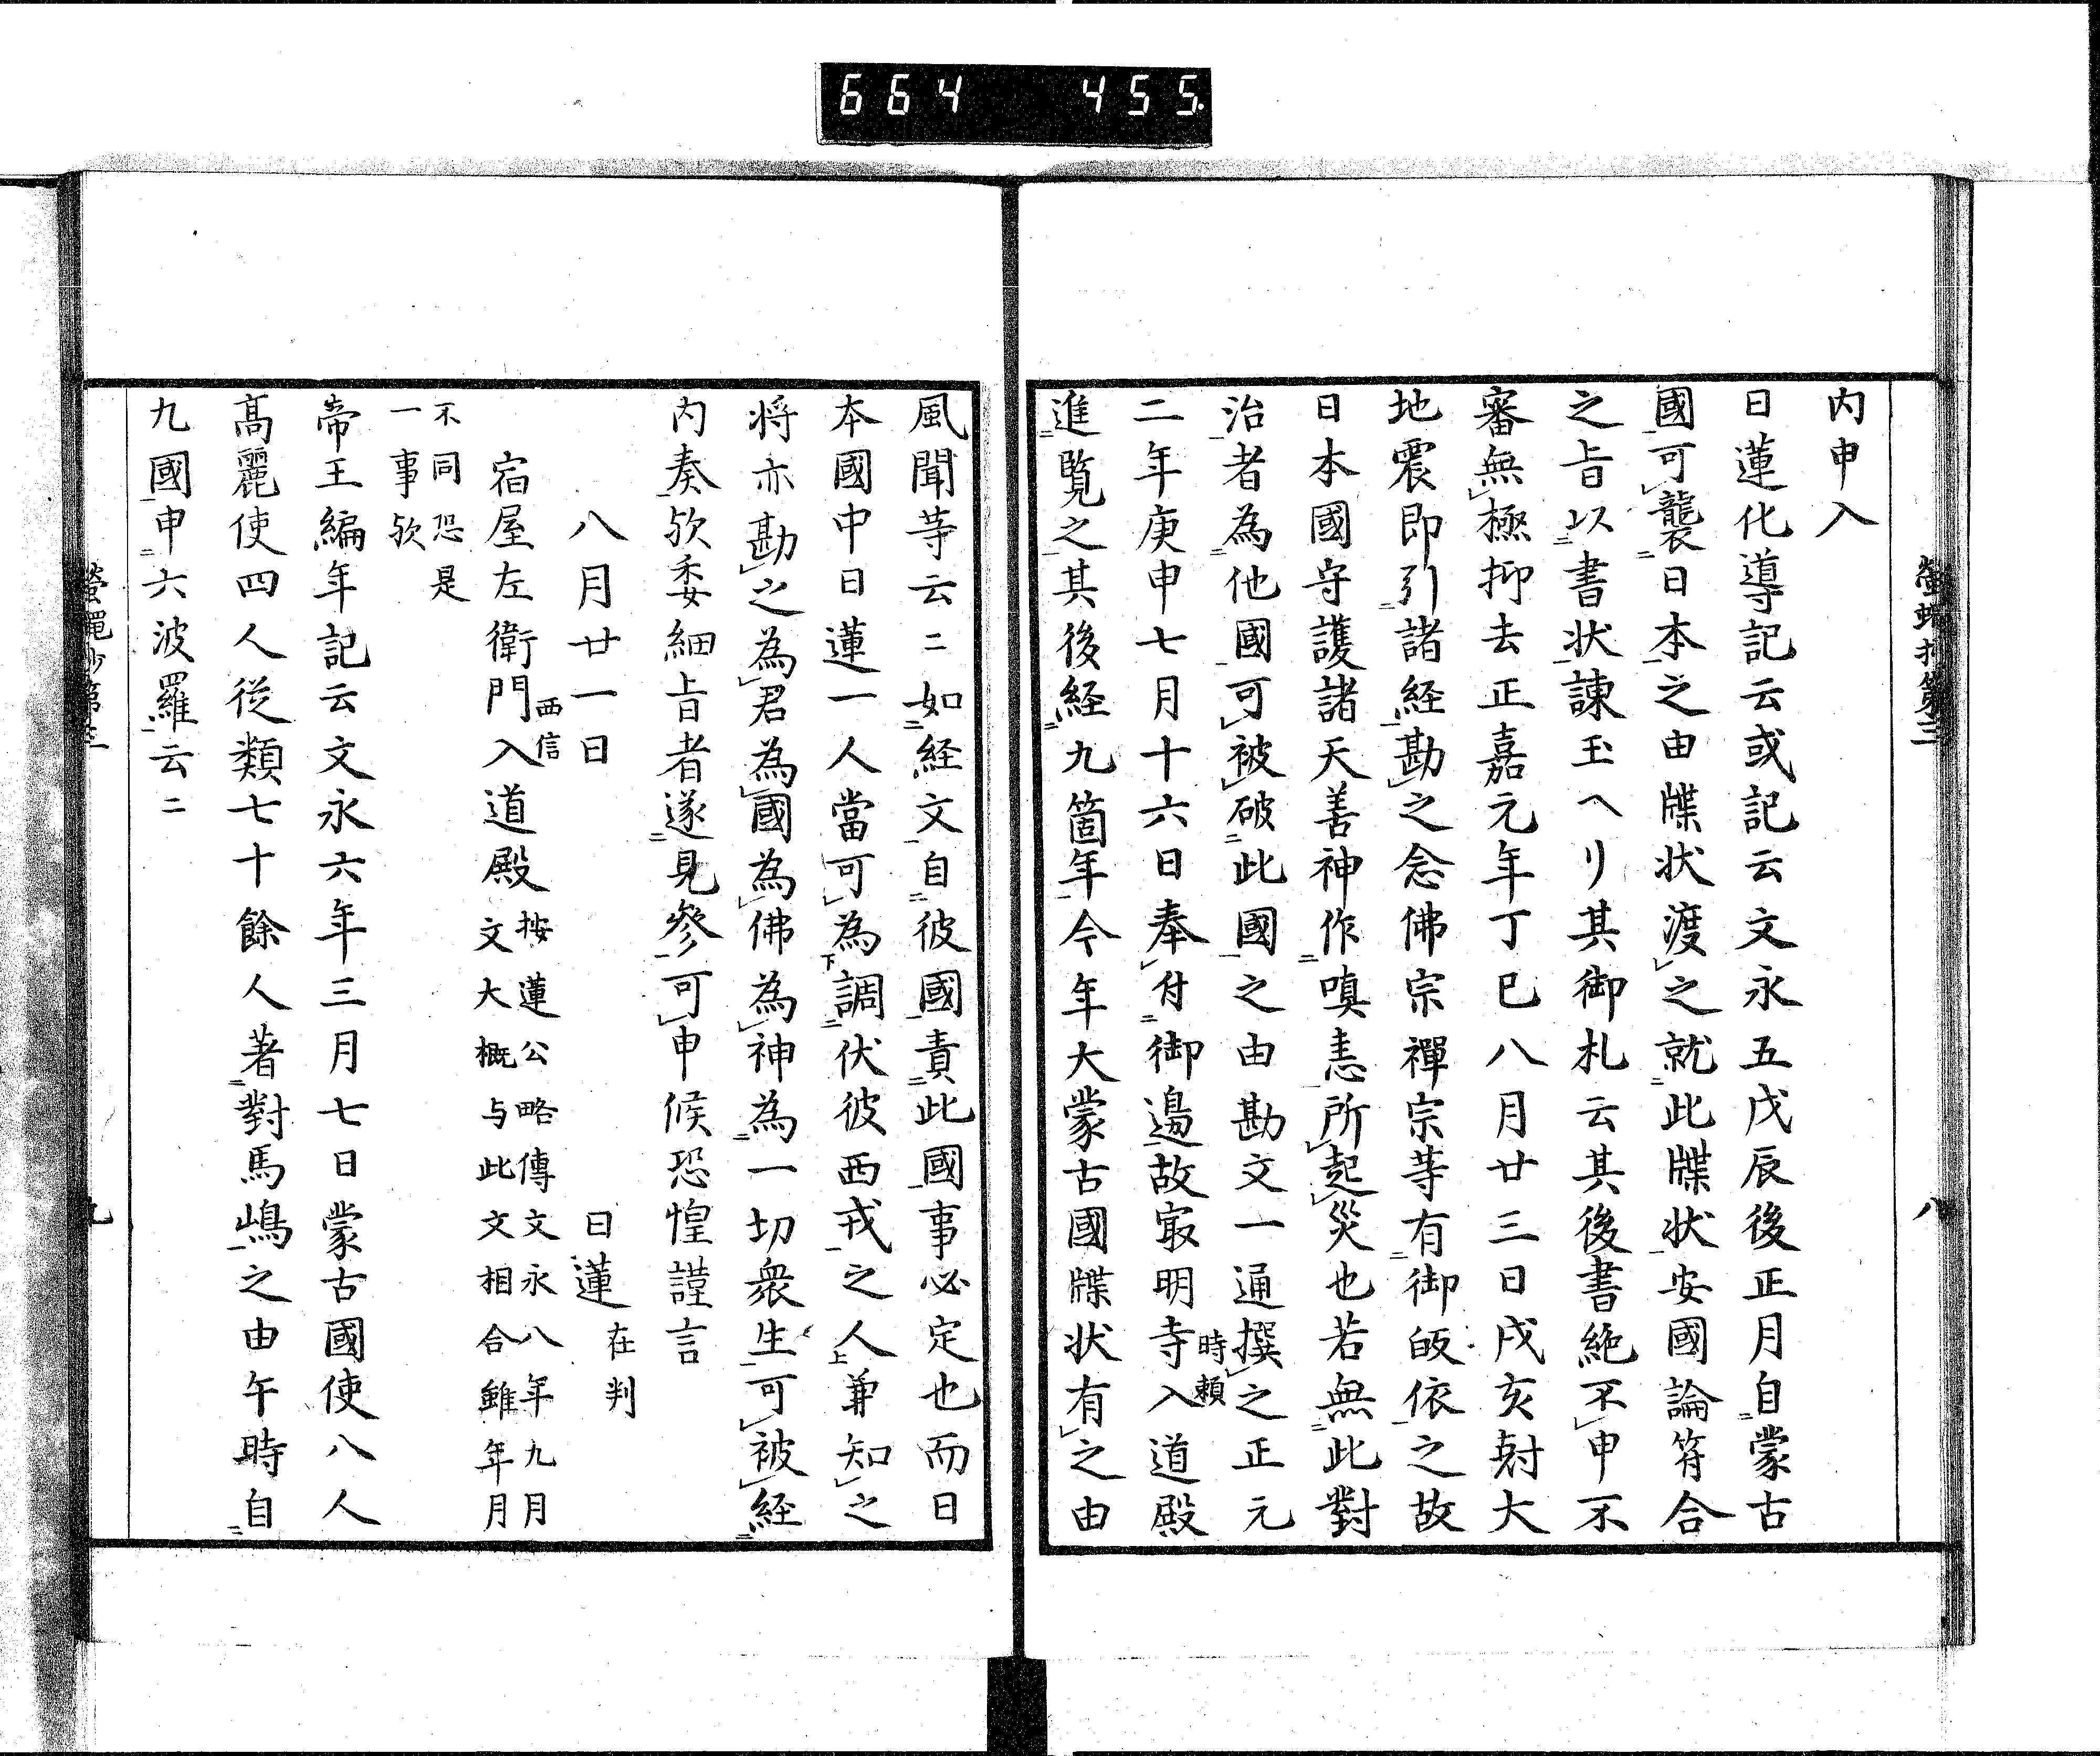 664 455
螢蠅抄第三
八
内申入
日蓮化導記云或記云文永五戊辰後正月自蒙古
國可襲日本之由牒状渡之就此牒状安國論符合
之旨以書状諫玉ヘリ其御札云其後書絶不申不
審無極抑去正嘉元年丁巳八月廿三日戌亥尅大
地震即引諸経勘之念佛宗禪宗等有御皈依之故
日本國守護諸天善神作嗔恚所起災也若無此對
治者為他國可被破此國之由勘文一通撰之正元
二年庚申七月十六日奉付御邊故冣明寺入道殿
時頼
進覧之其後経九箇年今年大蒙古國牒状有之由
風聞等云二如経文自彼國責此國事必定也而日
本國中日蓮一人當可為調伏彼西戎之人兼知之
将亦勘之為君為國為佛為神為一切衆生可被経
内奏欤委細旨者遂見參可申候恐惶謹言
八月廿一日 日蓮在判
宿屋左衛門入道殿
西信
按蓮公略傳文永八年九月
文大概与此文相合雖年月
不同恐是
一事欤
帝王編年記云文永六年三月七日蒙古國使八人
髙麗使四人従類七十餘人著對馬嶋之由午時自
九國申六波羅云二
螢蠅抄第三
九